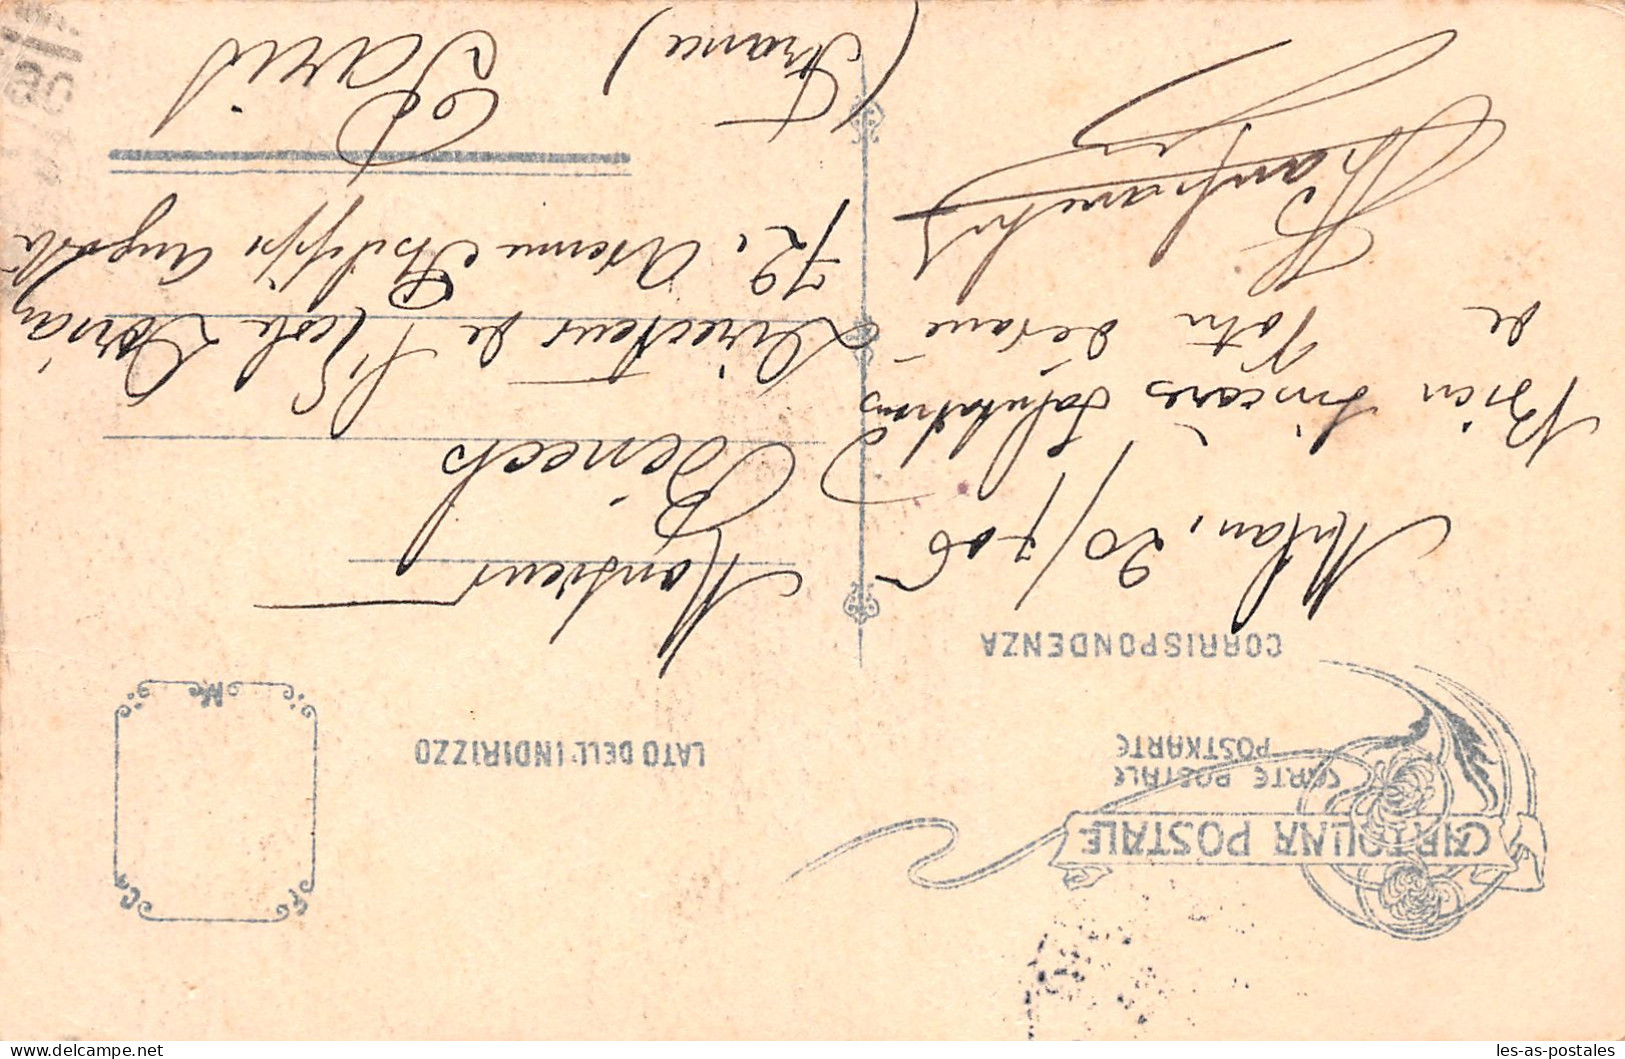 CARTOLINA POSTALE
CARTE POSTALE
POSTKARTE
LATO DELL'INDIRIZZO
CORRISPONDENZA
Milan, 20/7 06
Bien sincères salutations
de
Votre dévoué
Monsieur
Bénech
Directeur de l'Ecole Dorian
72, Avenue Philippe Auguste
Paris
(France)
les-as-postales.com